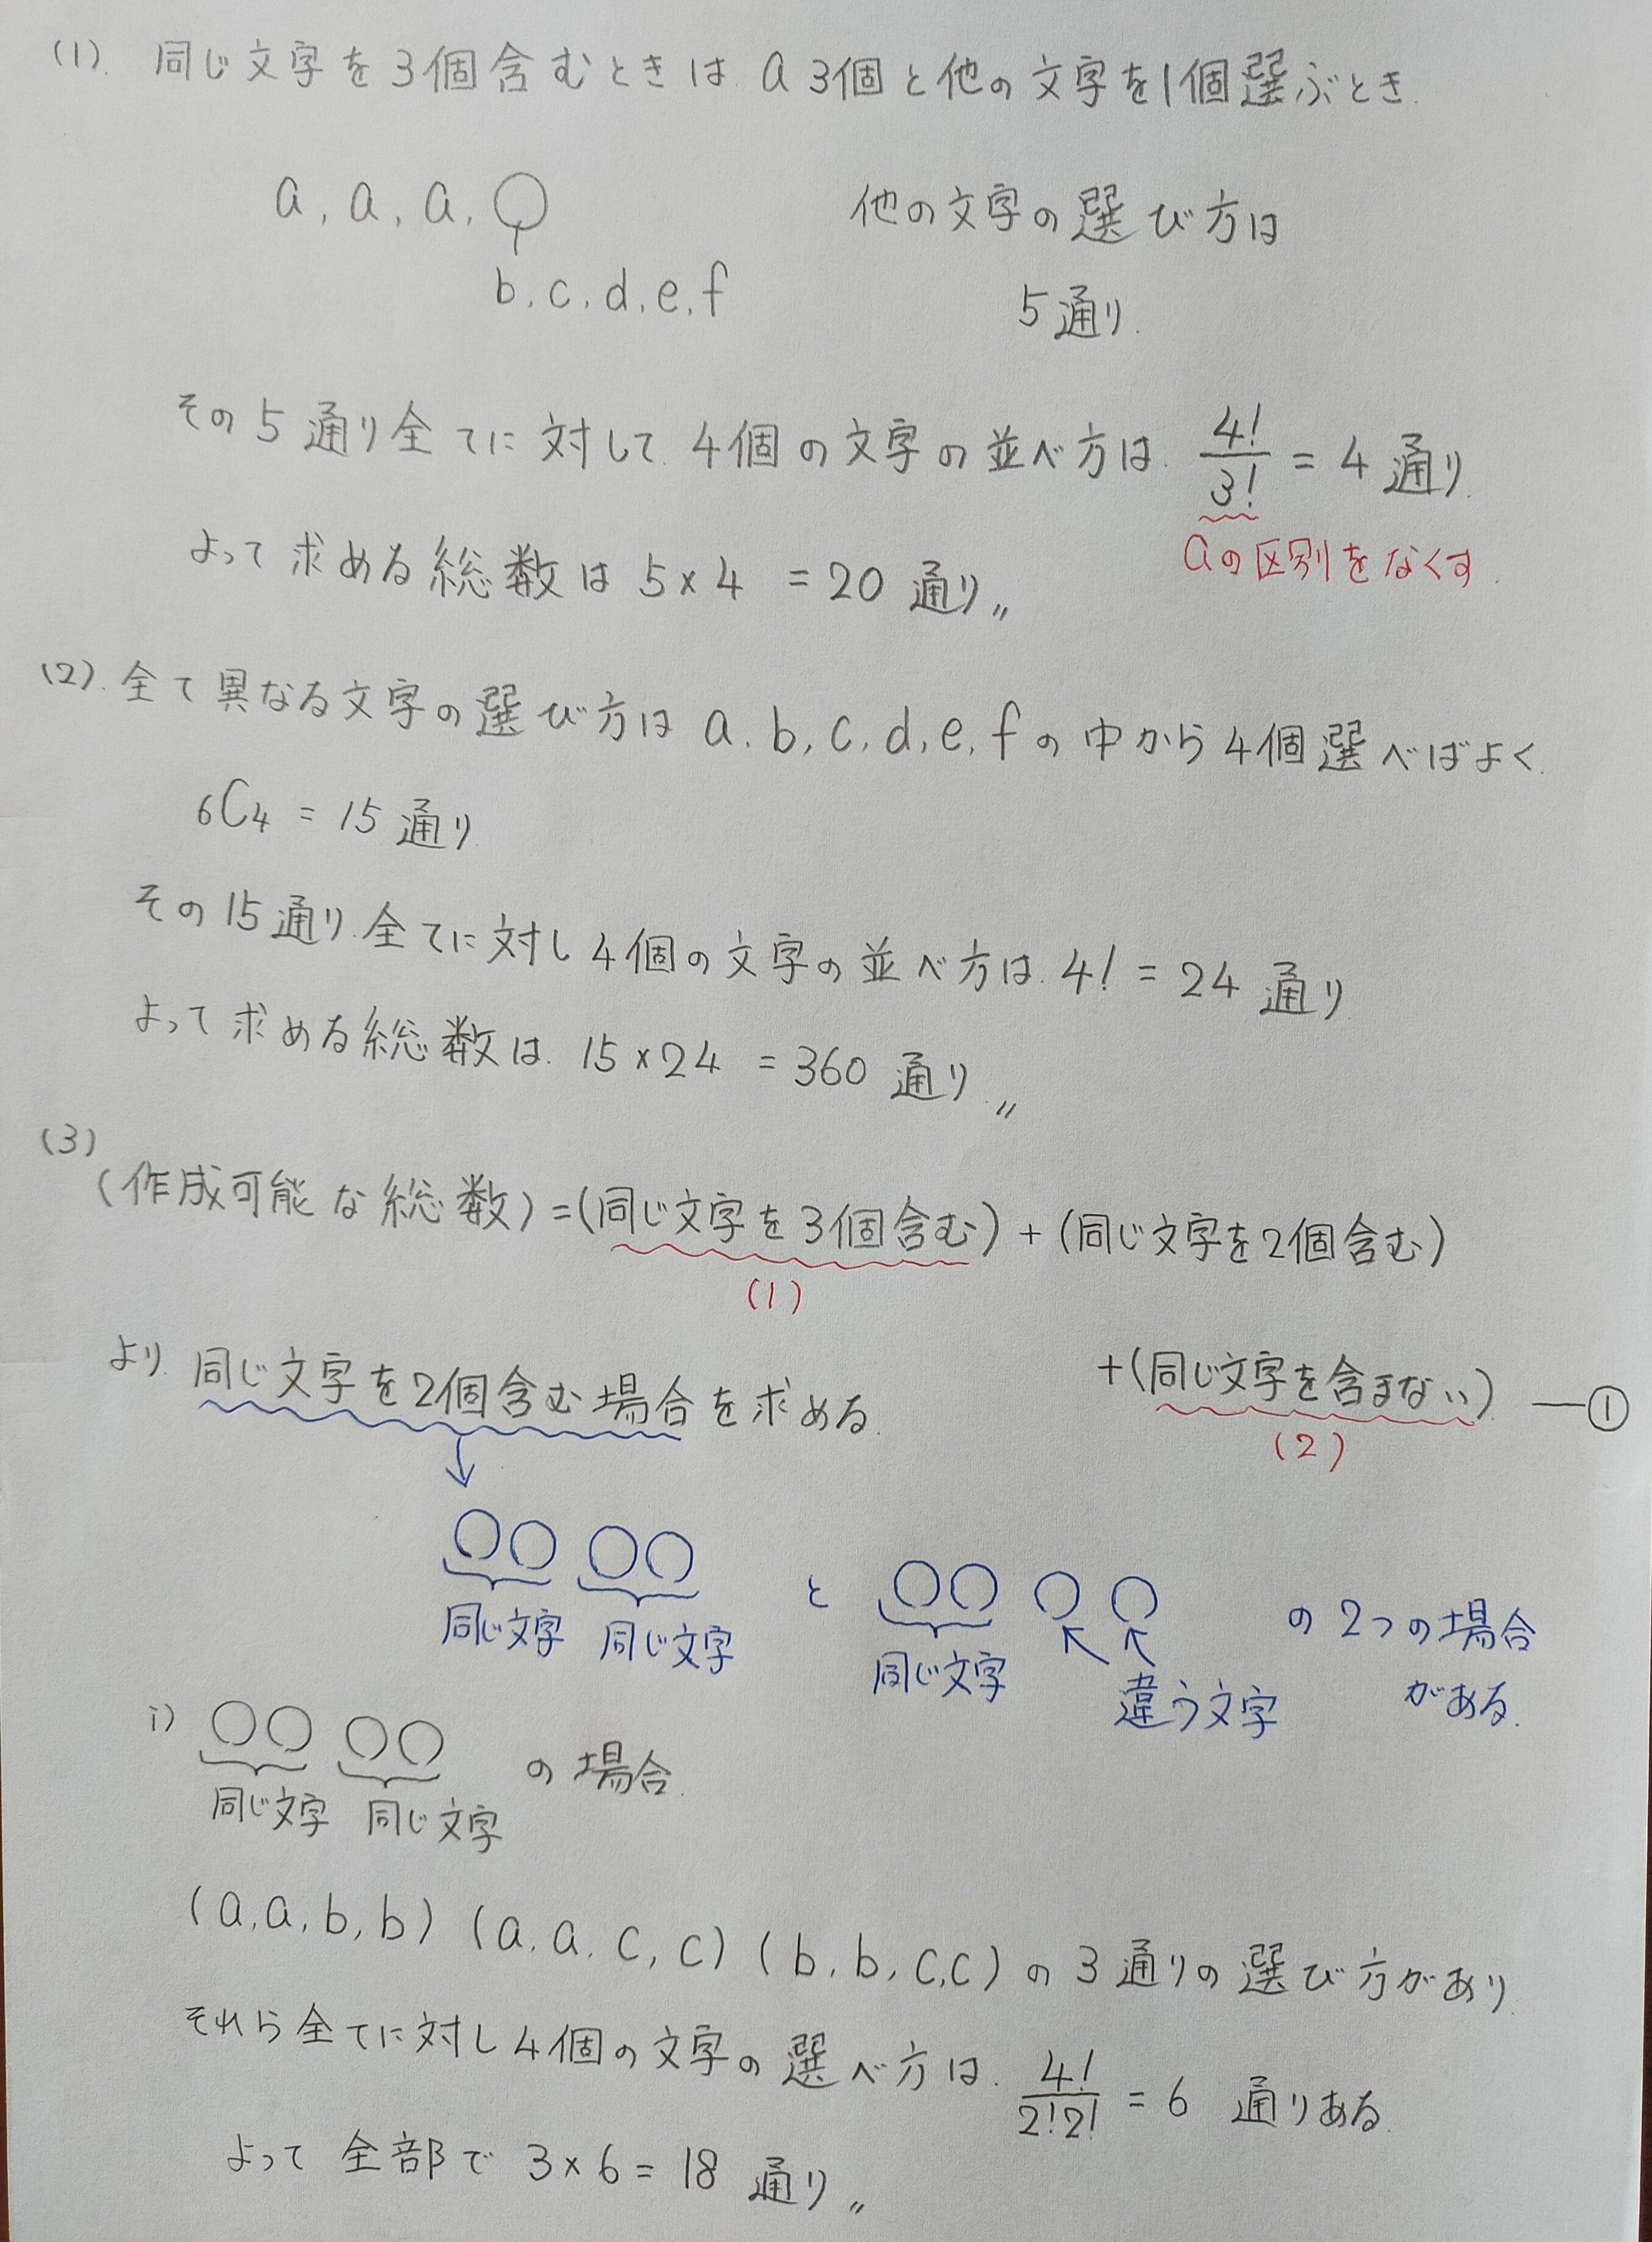 (1). 同じ文字を3個含むときは a 3個と他の文字を1個選ぶとき.
a, a, a, ○
b, c, d, e, f
他の文字の選び方は
5通り.
その5通り全てに対して 4個の文字の並べ方は 4!/3! = 4通り.
aの区別をなくす.
よって求める総数は 5×4 = 20 通り〃
(2). 全て異なる文字の選び方は a, b, c, d, e, f の中から4個選べばよく.
6C4 = 15 通り
その15通り全てに対し4個の文字の並べ方は 4! = 24 通り
よって求める総数は. 15×24 = 360 通り〃
(3)
(作成可能な総数) = (同じ文字を3個含む) + (同じ文字を2個含む)
(1)
+ (同じ文字を含まない) ―①
(2)
より. 同じ文字を2個含む場合を求める.
↓
○○ ○○ と ○○ ○ ○ の2つの場合
がある.
同じ文字 同じ文字 同じ文字 違う文字
i) ○○ ○○ の場合.
同じ文字 同じ文字
(a, a, b, b) (a, a, c, c) (b, b, c, c) の3通りの選び方があり
それら全てに対し4個の文字の選べ方は. 4!/2!2! = 6 通りある.
よって 全部で 3×6 = 18 通り〃